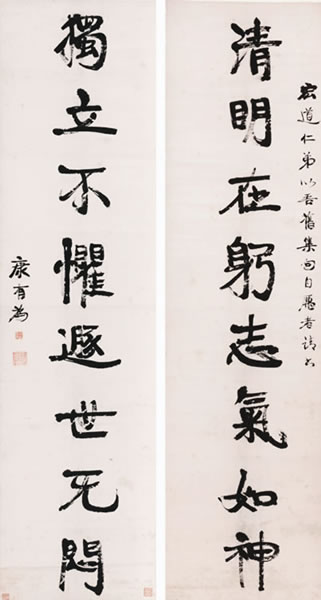 宏道仁弟以吾舊集句自者請
清明在躬志氣如神
獨立不懼遯世无悶
康有為